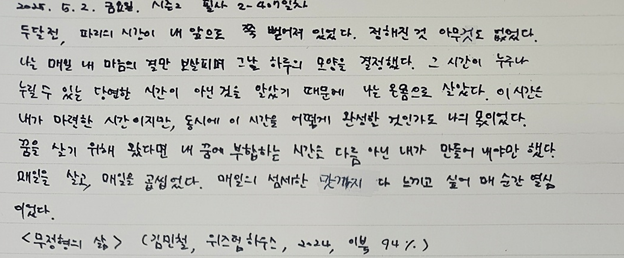 2025. 5. 2. 금요일. 시즌2 필사 2-407일차
두달전, 파리의 시간이 내 앞으로 쭉 뻗어져 있었다. 정해진 것 아무것도 없었다.
나는 매일 내 마음의 결만 보살피며 그날 하루의 모양을 결정했다. 그 시간이 누구나
누릴 수 있는 당연한 시간이 아닌 것을 알았기 때문에 나는 온몸으로 살았다. 이 시간은
내가 마련한 시간이지만, 동시에 이 시간을 어떻게 완성할 것인가도 나의 몫이었다.
꿈을 살기 위해 왔다면 내 꿈에 부합하는 시간은 다름 아닌 내가 만들어 내야만 했다.
매일을 살고, 매일을 곱씹었다. 매일의 섬세한 맛까지 다 느끼고 싶어 매 순간 열심
이었다.
<무정형의 삶> (김민철, 위즈덤하우스, 2024, 이북 94%)